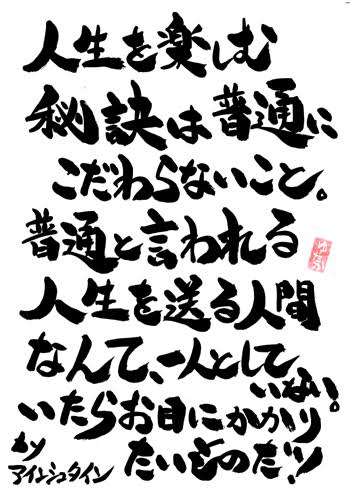 人生を楽しむ
秘訣は普通に
こだわらないこと。
普通と言われる
人生を送る人間
なんて、一人として
いない!
いたらお目にかかり
たいものだ!
by
アインシュタイン